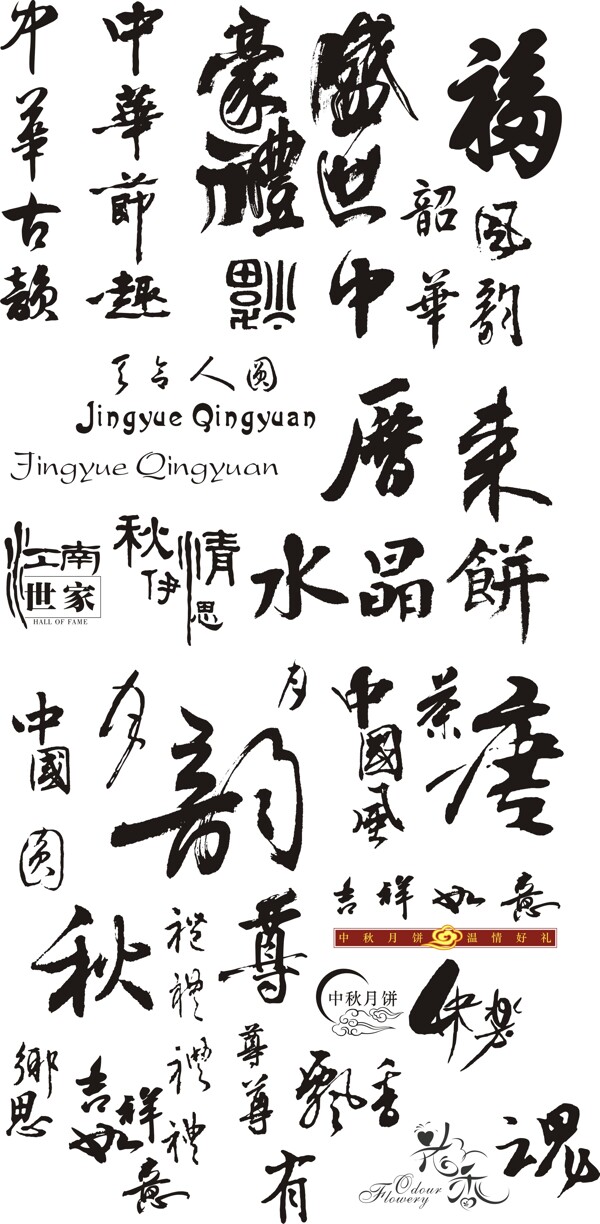 中華古韻
中華節趣
豪禮
盛世中華
福
韶
風韵
天合人圓
Jingyue Qingyuan
Jingyue Qingyuan
唐來
江南
世家
HALL OF FAME
秋伊情思
水晶餅
中國
月
韵
月
中國風
茶
唐
圆
吉祥如意
中秋月饼 温情好礼
秋
禮
禮
禮
禮
尊
中秋月饼
快樂
鄉思
吉祥如意
尊
尊
飄香
有
花香
Odour
Flowery
魂